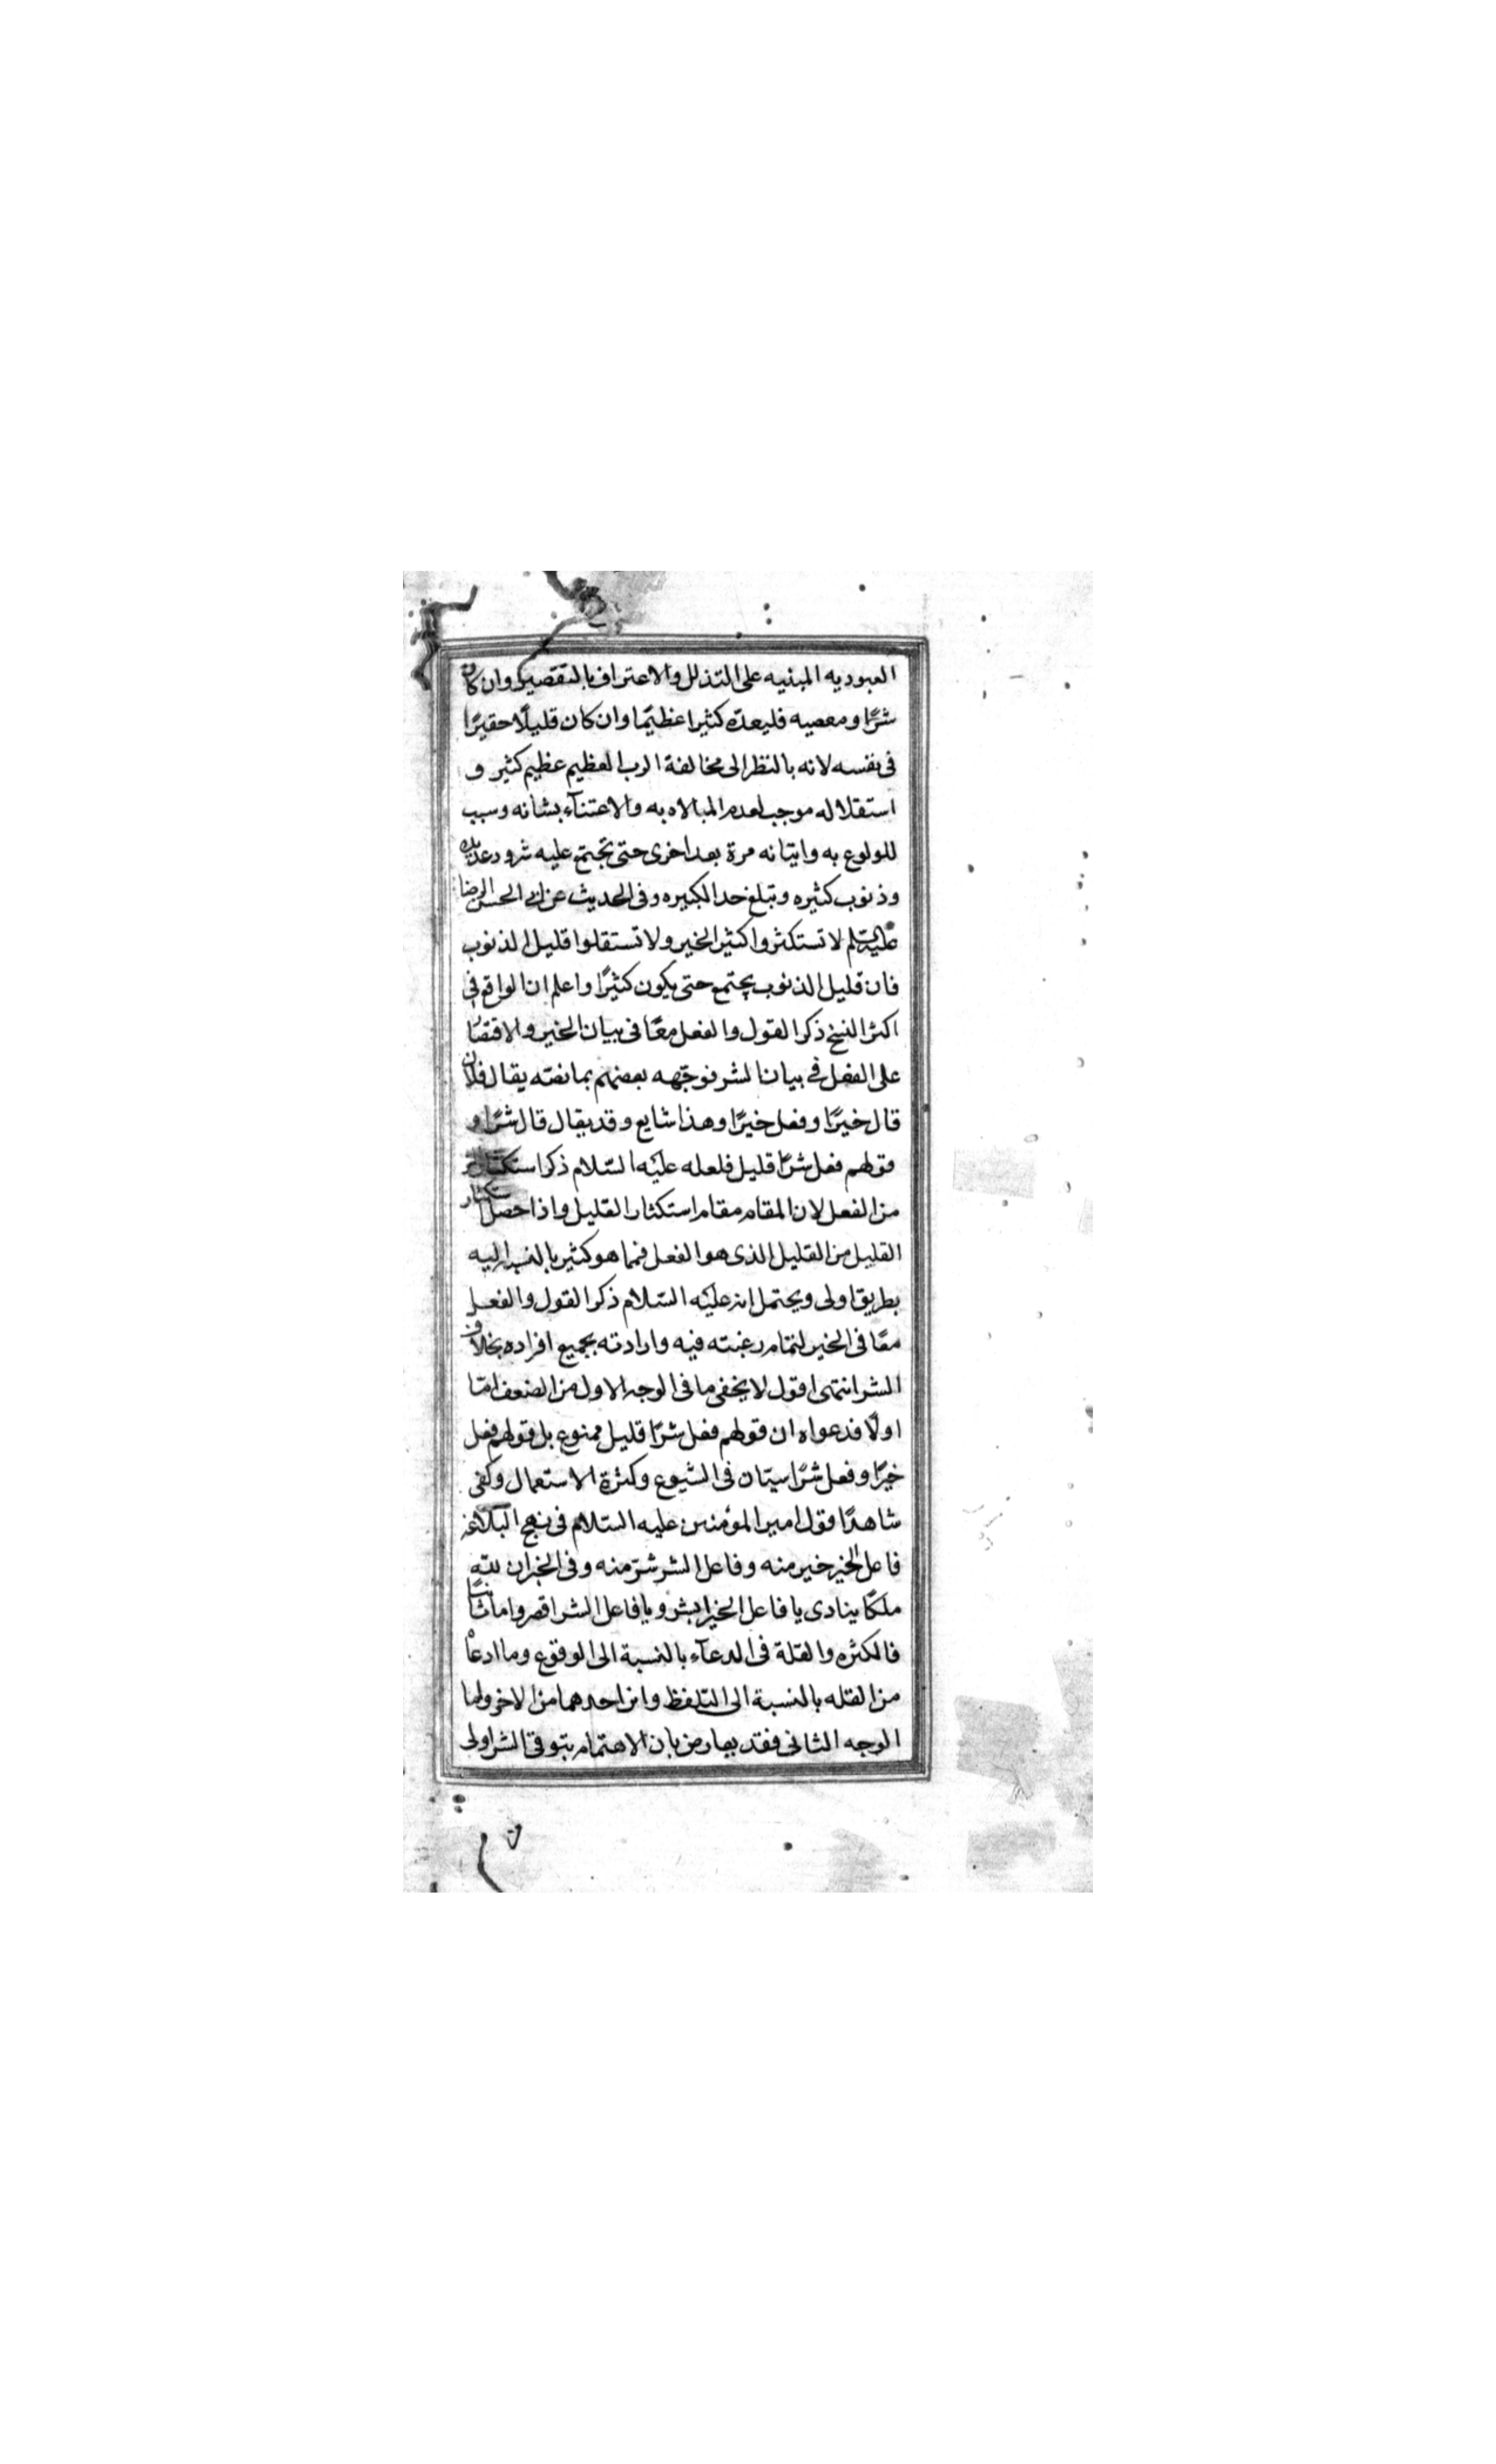 العبوديه المبنيه على التذلل والاعتراف بالتقصير وان كان
شرًا ومعصيه فليعدّه كثيرا عظيمًا وان كان قليلًا حقيرًا
فى نفسه لانه بالنظر الى مخالفة الرب العظيم عظيم كثير و
استقلاله موجب لعدم المبالاه به والاعتنآء بشانه وسبب
للولوع به وايتانه مرة بعد اخرى حتى تجتمع عليه شرود عديده
وذنوب كثيره وتبلغ حد الكبيره وفى الحديث عن ابى الحسن الرضا
عليه السلم لا تستكثروا كثير الخير ولا تستقلوا قليل الذنوب
فان قليل الذنوب يجتمع حتى يكون كثيرًا واعلم ان الواقع فى
اكثر النسخ ذكر القول والفعل معًا فى بيان الخير والاقتصار
على الفعل فى بيان الشر فوجّهه بعضهم بما نصّه يقال فلان
قال خيرًا وفعل خيرًا وهذا شايع وقد يقال قال شرًا و
قولهم فعل شرًا قليل فلعله عليه السّلام ذكر استكثار الشر
من الفعل لان المقام مقام استكثار القليل واذا حصل استكثار
القليل من القليل الذى هو الفعل فما هو كثير بالنسبة اليه
بطريق اولى ويحتمل انه عليه السّلام ذكر القول والفعل
معًا فى الخير لتمام رغبته فيه وارادته بجميع افراده بخلاف
الشر انتهى اقول لا يخفى ما فى الوجه الاول من الضعف امّا
اولًا فدعواه ان قولهم فعل شرًا قليل ممنوع بل قولهم فعل
خيرًا وفعل شرًا سيّان فى الشيوع وكثرة الاستعمال وكفى
شاهدًا قول امير المؤمنين عليه السّلام فى نهج البلاغه
فاعل الخير خير منه وفاعل الشر شرّ منه وفى الخبر ان للّه
ملكًا ينادى يا فاعل الخير ابشر ويا فاعل الشر اقصر واما ثانيًا
فالكثره والقلة فى الدعآء بالنسبة الى الوقوع وما ادعاه
من القله بالنسبة الى التلفظ واين احدهما من الاخر واما
الوجه الثانى فقد يعارض بان الاهتمام بتوقى الشر اولى